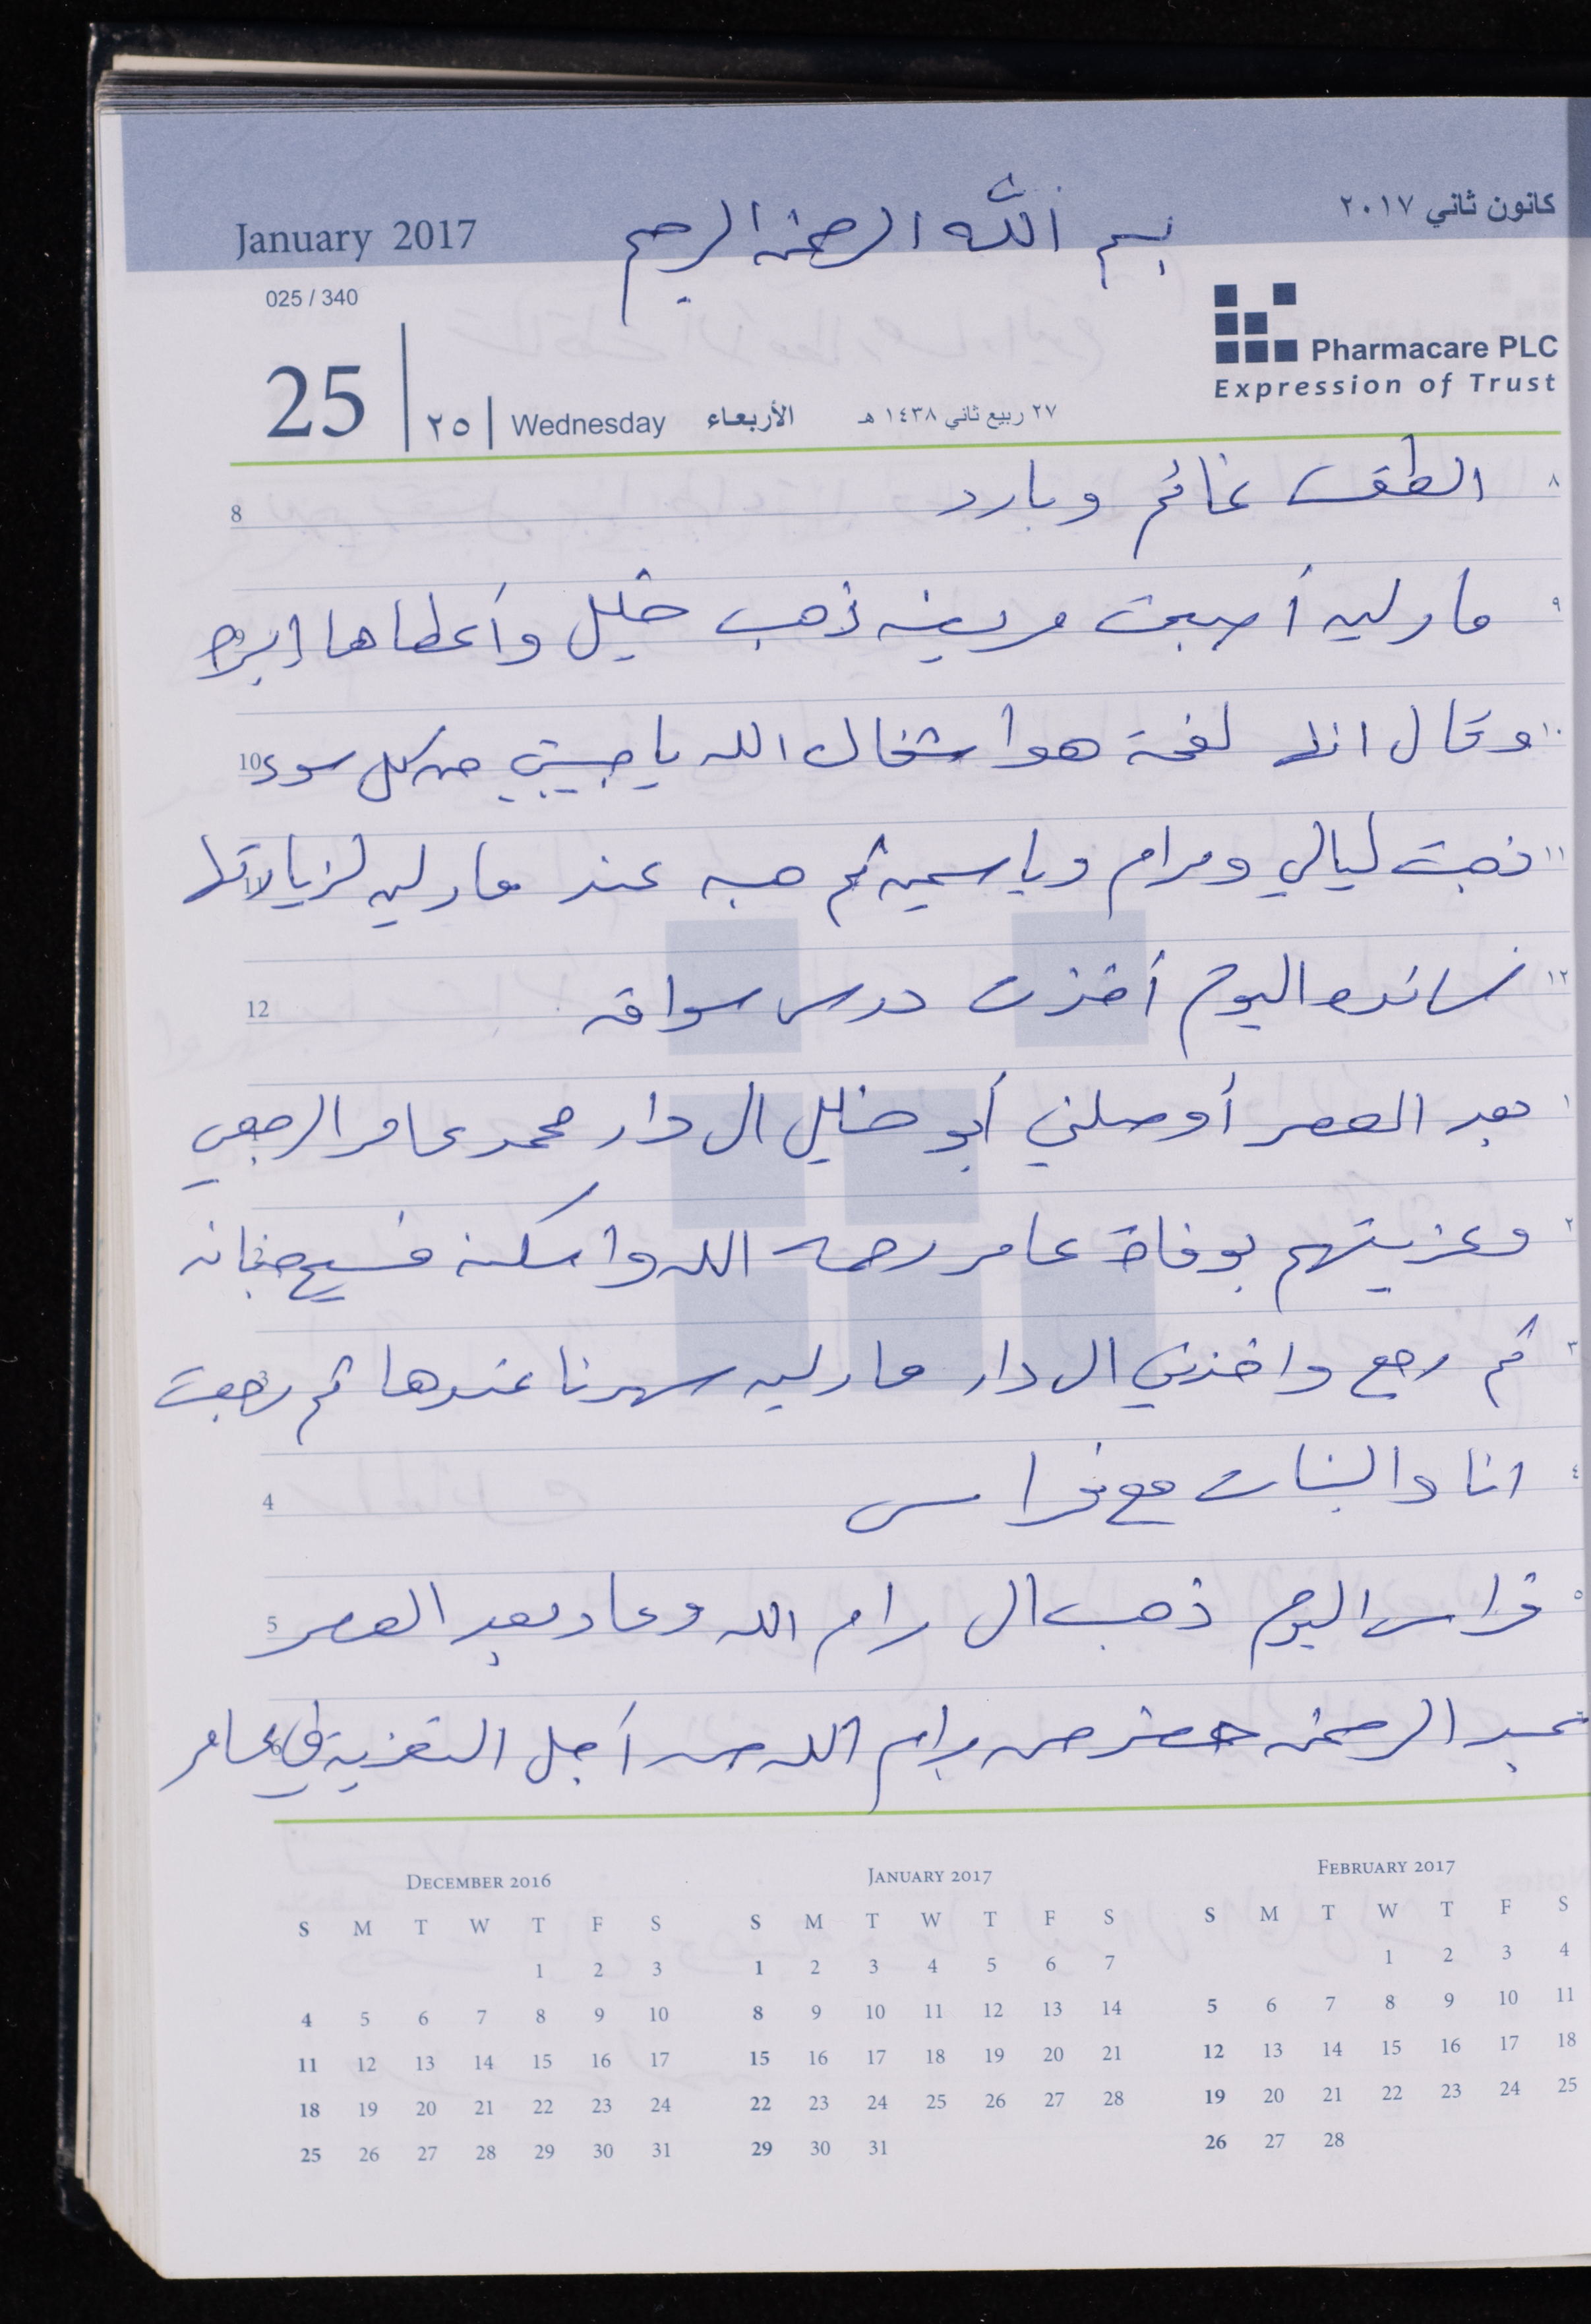 كانون ثاني ٢٠١٧
بسم الله الرحمن الرحيم
January 2017
025 / 340
Pharmacare PLC
Expression of Trust
25 | ٢٥ | Wednesday الأربعاء ٢٧ ربيع ثاني ١٤٣٨ هـ
٨ الطقس غائم وبارد 8
٩ مارلين أصبحت مريضه ذهب خليل وأعطاها إبره
١٠ وقال انها لفحة هوا شفاك الله يا حبيبتي من كل سوء 10
١١ ذهبت ليالي ومرام وياسمين ثم هبه عند مارلين لزيارتها
١٢ ساندره اليوم أخذت درس سواقه 12
١ بعد العصر أوصلني أبو خليل الى دار محمد عامر الرجعي
٢ وعزيتهم بوفاة عامر رحمه الله واسكنه فسيح جنانه
٣ ثم رجع واخذني الى دار مارلين سهرنا عندها ثم رجعت
٤ انا والبنات مع فراس 4
٥ فراس اليوم ذهب الى رام الله وعاد بعد العصر 5
عبد الرحمن حضر من رام الله من أجل التعزية في عامر
DECEMBER 2016
S M T W T F S
1 2 3
4 5 6 7 8 9 10
11 12 13 14 15 16 17
18 19 20 21 22 23 24
25 26 27 28 29 30 31
JANUARY 2017
S M T W T F S
1 2 3 4 5 6 7
8 9 10 11 12 13 14
15 16 17 18 19 20 21
22 23 24 25 26 27 28
29 30 31
FEBRUARY 2017
S M T W T F S
1 2 3 4
5 6 7 8 9 10 11
12 13 14 15 16 17 18
19 20 21 22 23 24 25
26 27 28